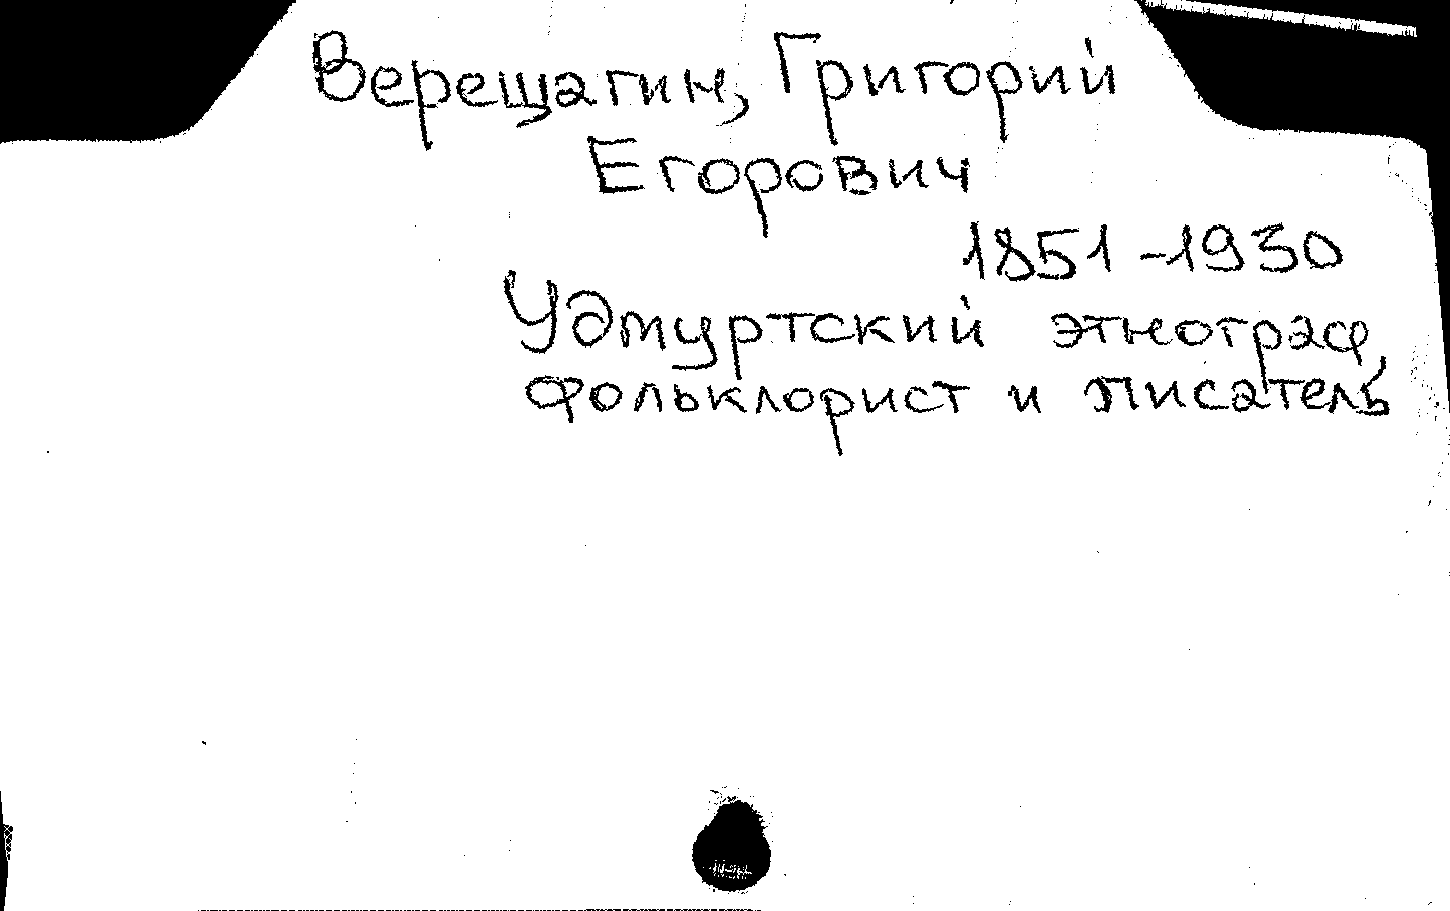 Верещагин, Григорий
Егорович
1851-1930
Удмуртский этнограф,
фольклорист и писатель